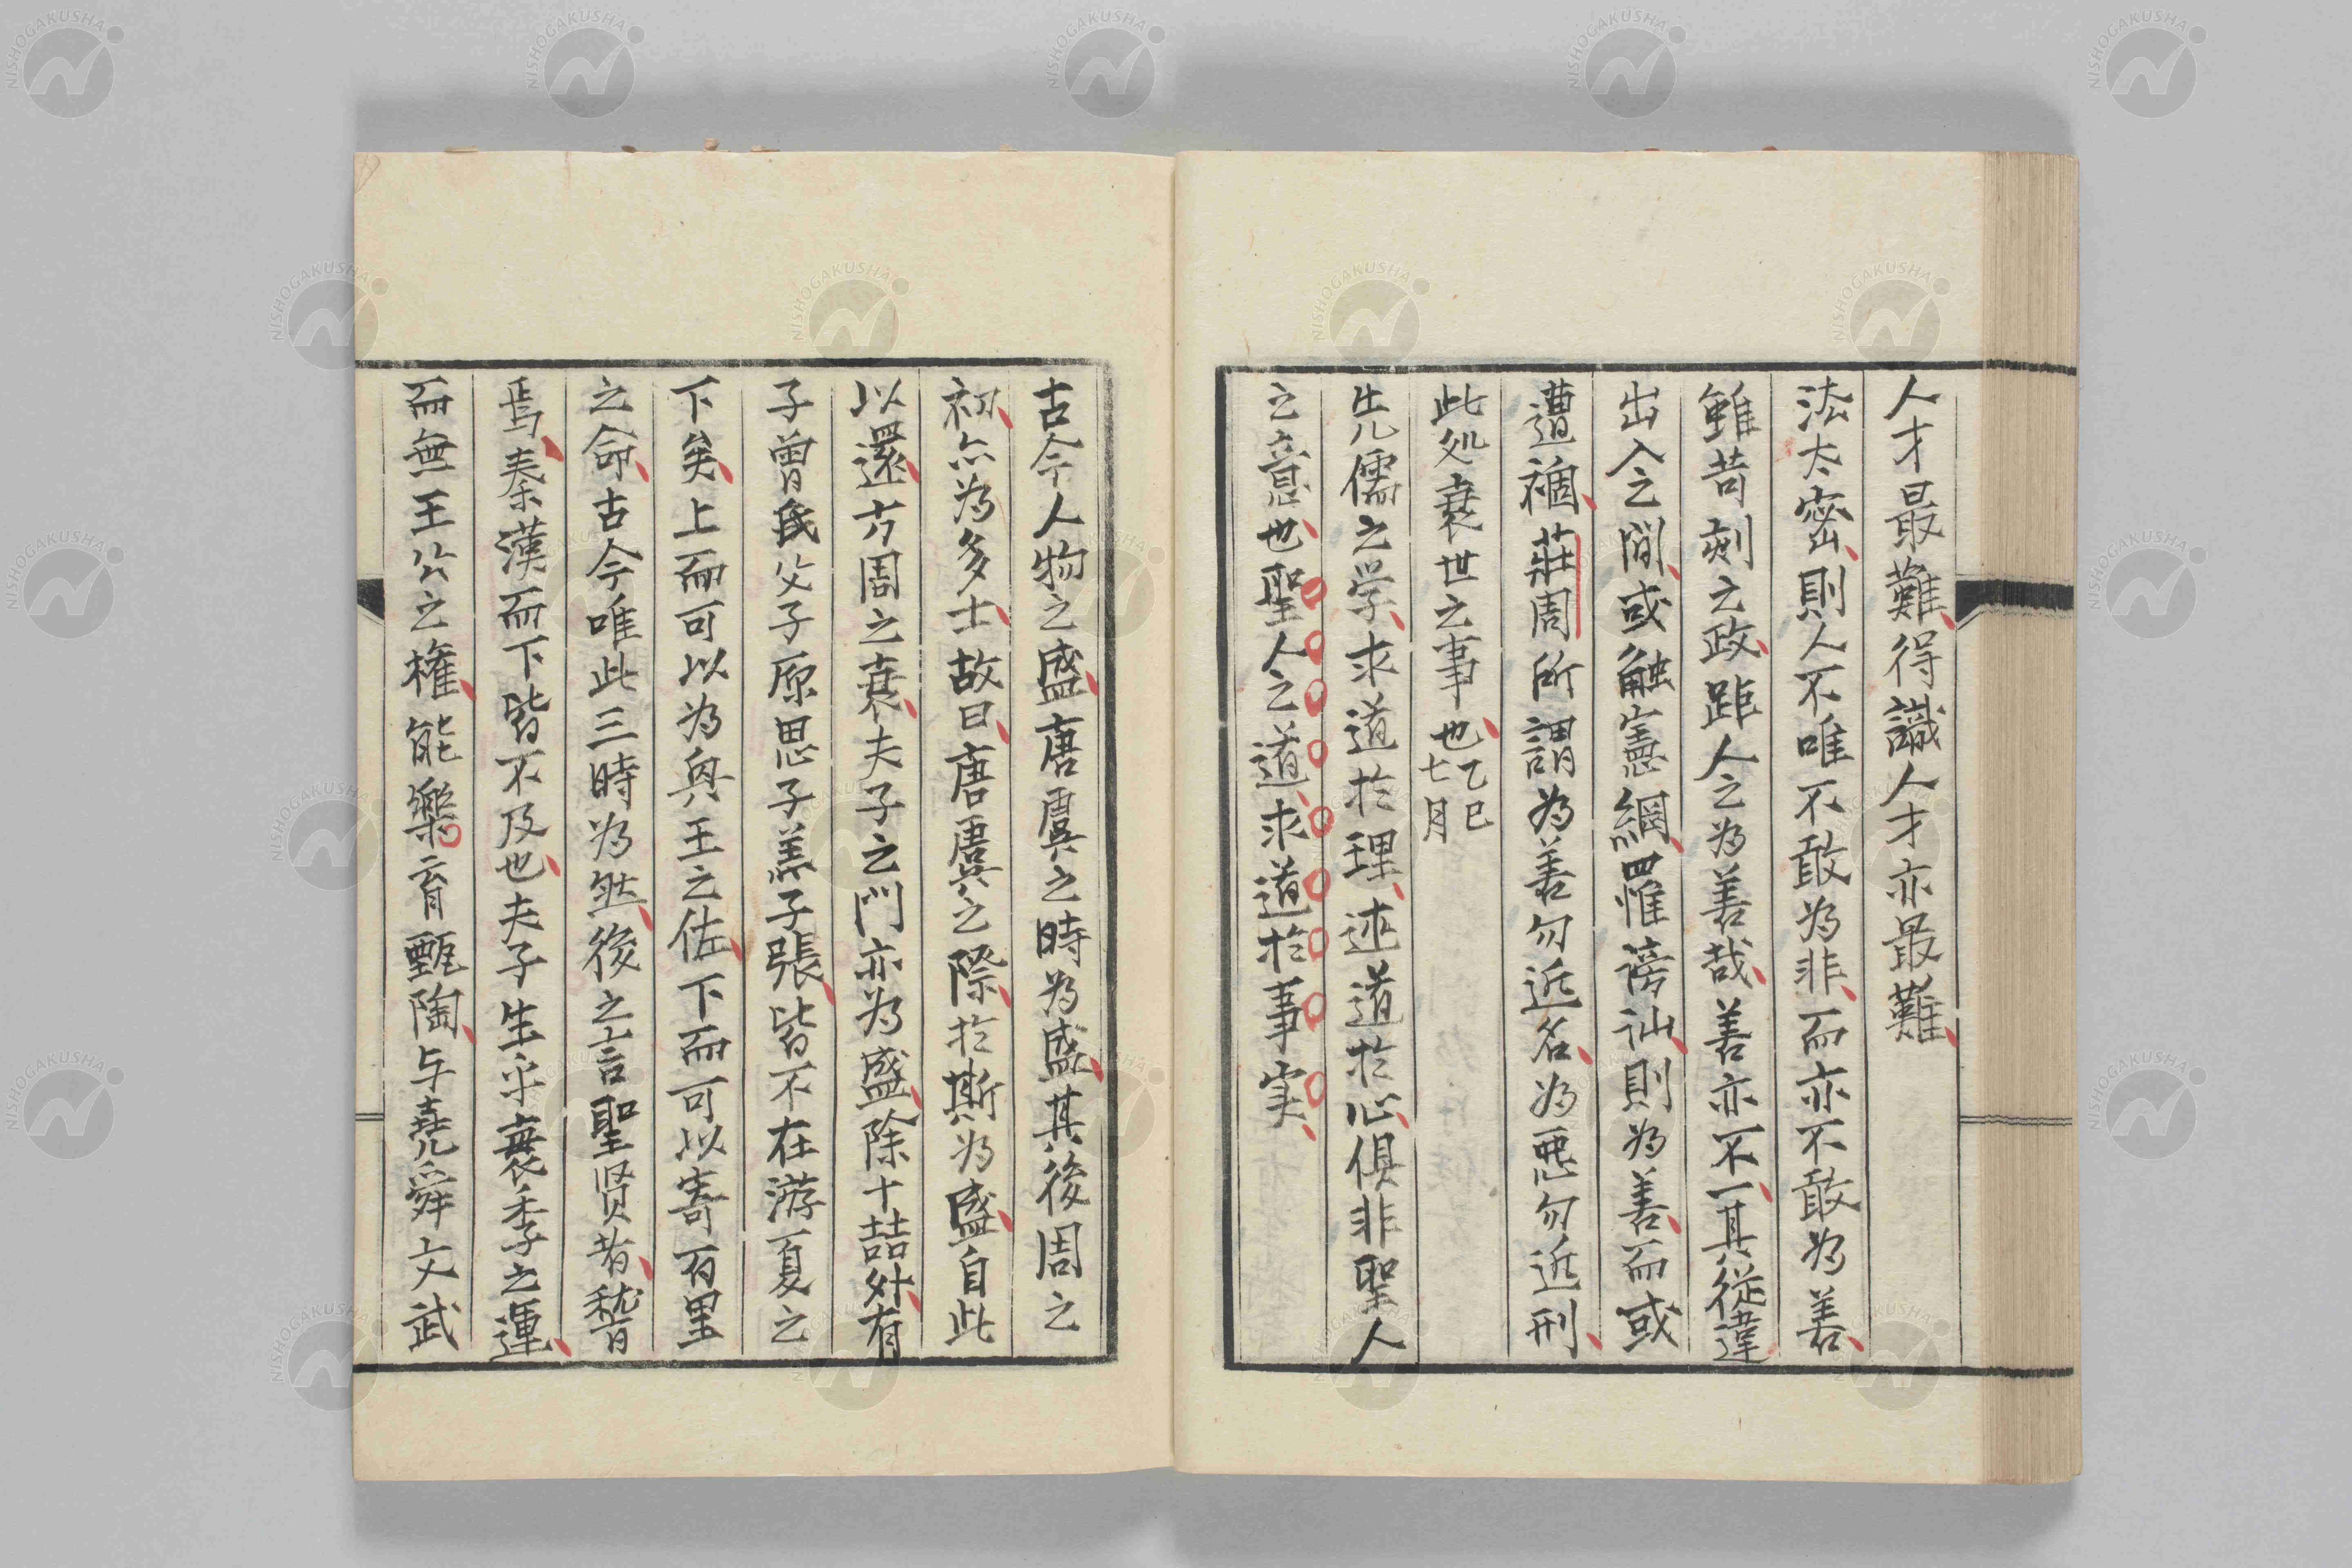 人才最難得識人才亦最難
法太密則人不唯不敢為非而亦不敢為善
雖苛刻之政距人之為善哉善亦不一其従違
出入之間或触憲網罹謗訕則為善而或
遭禍荘周所謂為善勿近名為悪勿近刑
此処衰世之事也乙巳七月
先儒之学求道於理述道於心倶非聖人
之意也聖人之道求道於事実
古今人物之盛唐虞之時為盛其後周之
初亦為多士故曰唐虞之際於斯為盛自此
以還方周之衰夫子之門亦為盛除十喆外有
子曽氏父子原思子羔子張皆不在游夏之
下矣上而可以為與王之佐下而可以寄百里
之命古今唯此三時為然後之言聖贤者嵆
焉秦漢而下皆不及也夫子生乎衰季之運
而無王公之権能楽育甄陶与堯舜文武
NISHOGAKUSHA